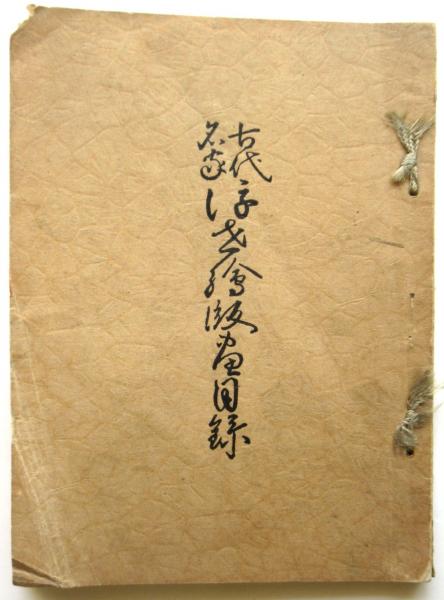 古代
名家
浮世繪版画目録